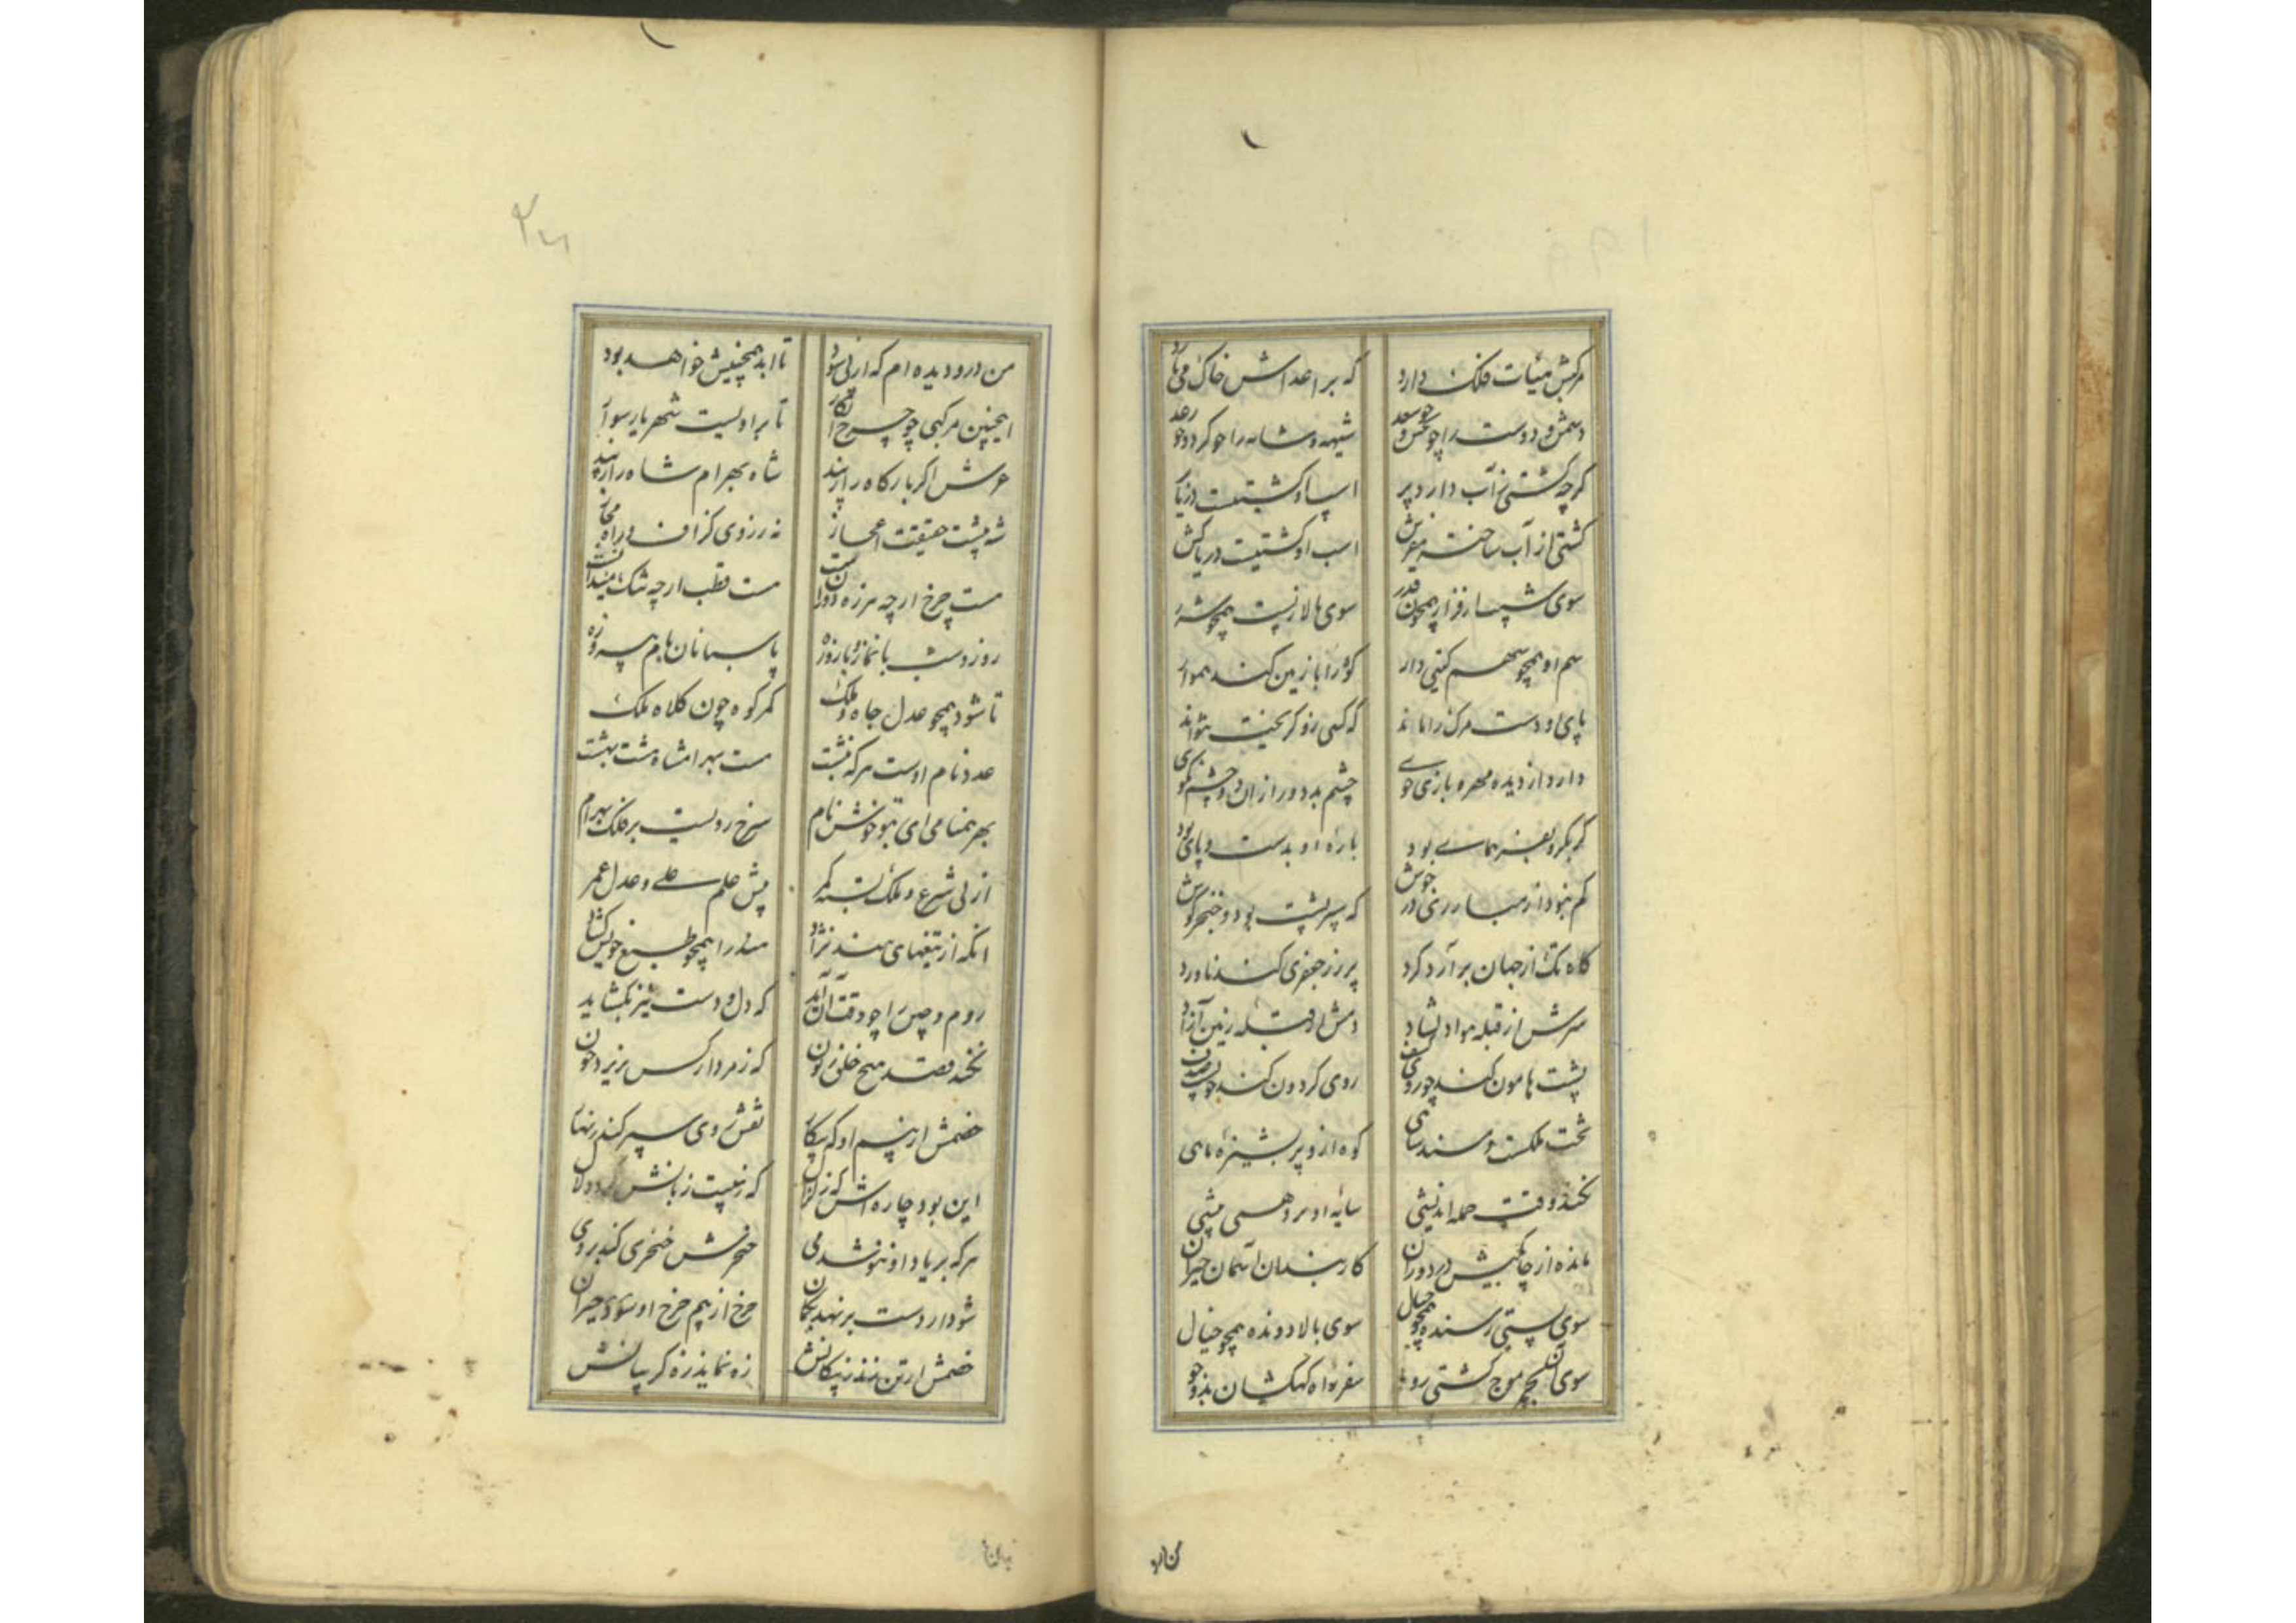 مرکبش هیئات فلک دارد که بر اعداش خاک می‌بارد
دشمن و دوست را چو نحس و چو سعد شیهه و شانه را چو کرد و چو رعد
کرچه کشتی ز آب دارد پر اسپ او کشتیست دریا
کشتی از آب ساخته مفرش اسب او کشتیست دریاکش
سوی شیب ار فراز همچون قدر سوی بالا ز پست همچو شرر
سم او همچو سهم کیتی دار کوه را با زمین کند هموار
پای او دست مرک را ماند که کسی زو کریخت نتواند
دارد از دیده مهره بازی خوی چشم بد دور از آن دو چشم نکوی
کر بکردیفبر همای بود باره او بدست و پای بود
کم نبود از مبارزی در جوش که سپر پشت بود و خنجر کوش
کاه تک از جهان برآرد کرد بر زر جعفری کند ناورد
سرش از قبله مواد نشاد دمش از قبله زمین آزاد
پشت هامون کند چو روی کشف روی کردون کند چو پشت صدف
تخت ملکست و مسند شاهی کوه ازو پر بشیزه ماهی
نکند وقت حمله اندیشی سایه او برو همی پیشی
مانده از چابکیش در دوران کار بندان آسمان حیران
سوی پستی رسنده همچو خیال سوی بالا دونده همچو خیال
سوی آن لجه موج کشتی رو سفر راه کهکشان بدو جو
من درو دیده ام که از پی سود تا ابد همچنیش خواهد بود
اینچنین مرکبی چو چرخ انکار تا بر او نیست شهریار سوار
عرش اکر بارکاه را زیبد شاه بهرامشاه را زیبد
شه پشت حقیقت اعجاز نه ز روی کزاف و راه مجاز
هست چرخ ارچه هرزه دولن نیست هست قطب ارچه تنک میدانست
روز و شب با نماز و با روزه پاسبانان بام پیروزه
تا شود همچو عدل جاه و ملک کمر کوه چون کلاه ملک
عدد نام اوست هر که نبشت هست بهرامشاه هشت بهشت
بهر همنامی ای بتو خوش نام سرخ رویست بر فلک بهرام
از پی شرع و ملک بسته کمر پیش علم علی و عدل عمر
آنکه از تیغهای هند نژاد هند را همچو طبع خویش کشاد
روم و چین را چو وقت آن آید که دل و دست نیز بکشاید
نکند قصد هیچ خلق زبون که ز مردار کس نریزد خون
خصمش از بیم او که پیکار نقش روی سپر کند زنهار
این بود چاره اش که ز نزال که زنیست زبانش کردد لال
هر که بر یاد او ننوشد می حنجرش خنجری کند بر وی
شود ار دست بر نهد بکمان چرخ از بیم چرخ او حیران
خصمش ار تن زند ز پیکانش زه نماید زره کریبانش
من درو